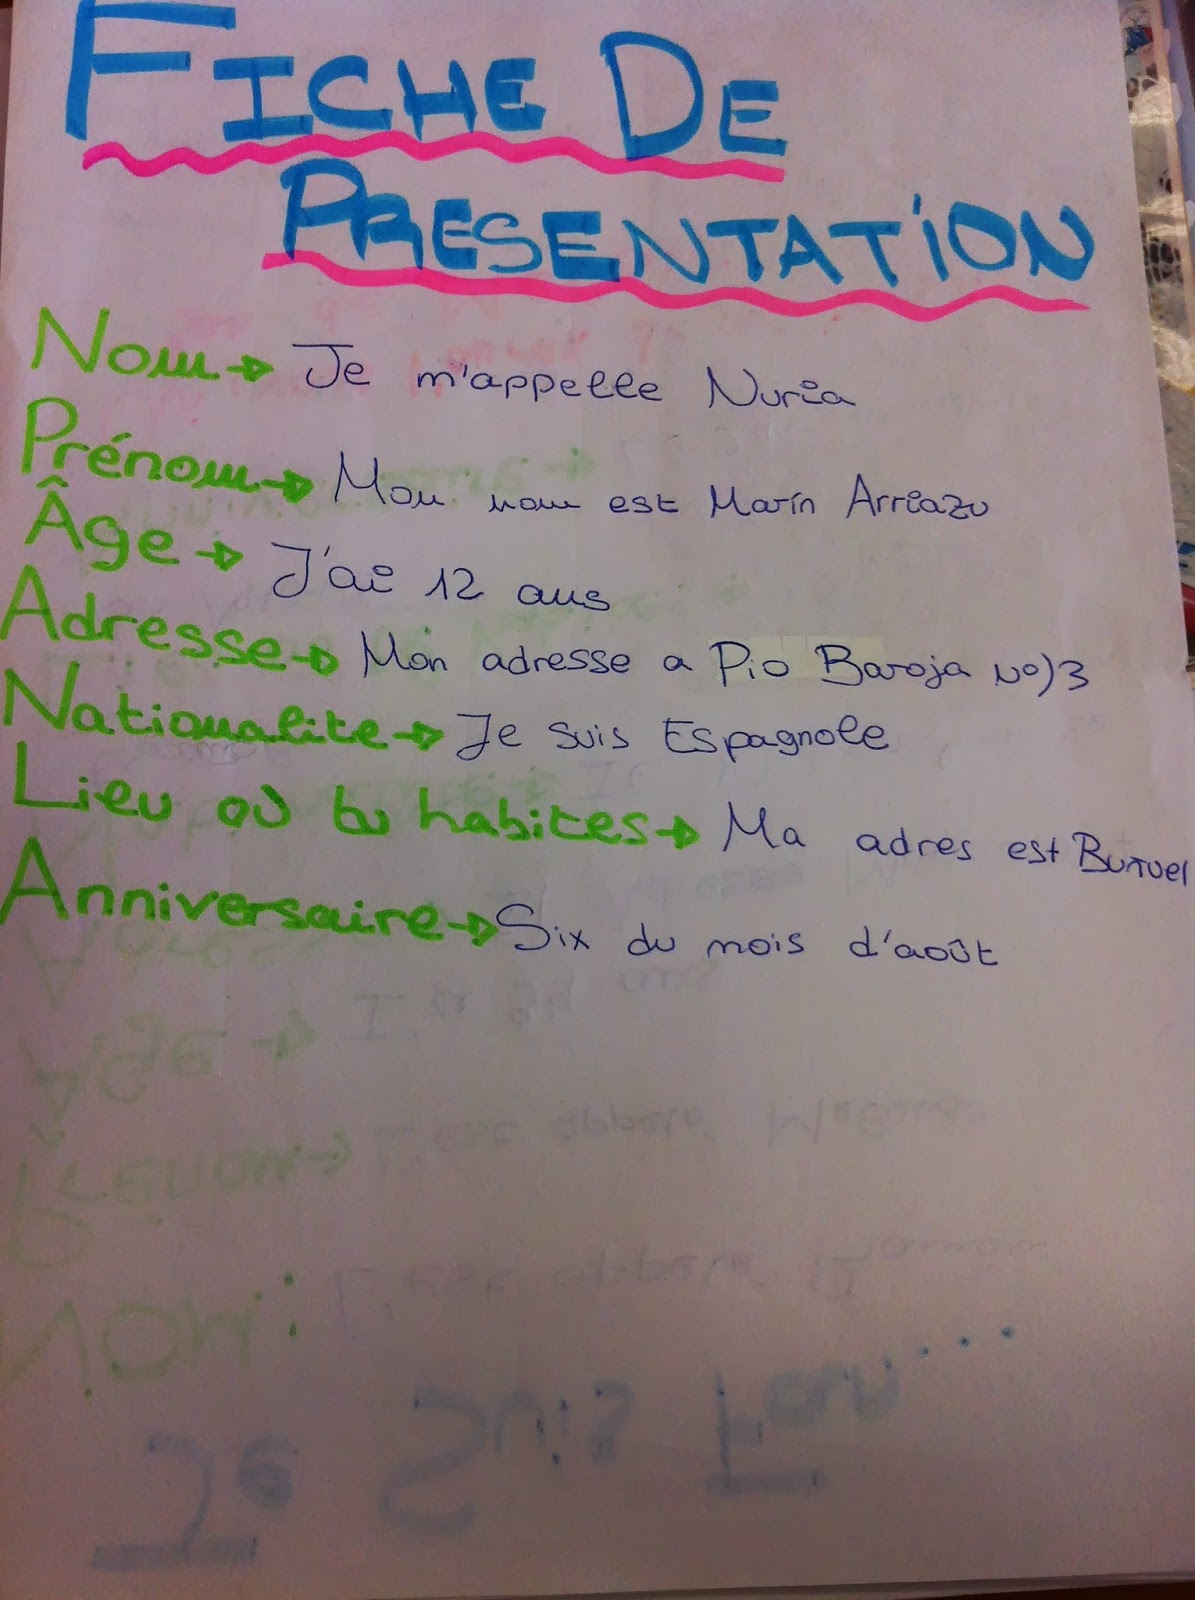 FICHE DE
PRESENTATION
Nom → Je m'appelle Nuria
Prénom → Mon nom est Marín Arriazu
Âge → J'ai 12 ans
Adresse → Mon adresse a Pio Baroja Nº)3
Nationalite → Je suis Espagnole
Lieu où tu habites → Ma adres est Buñuel
Anniversaire → Six du mois d'août
Je Suis Fan....